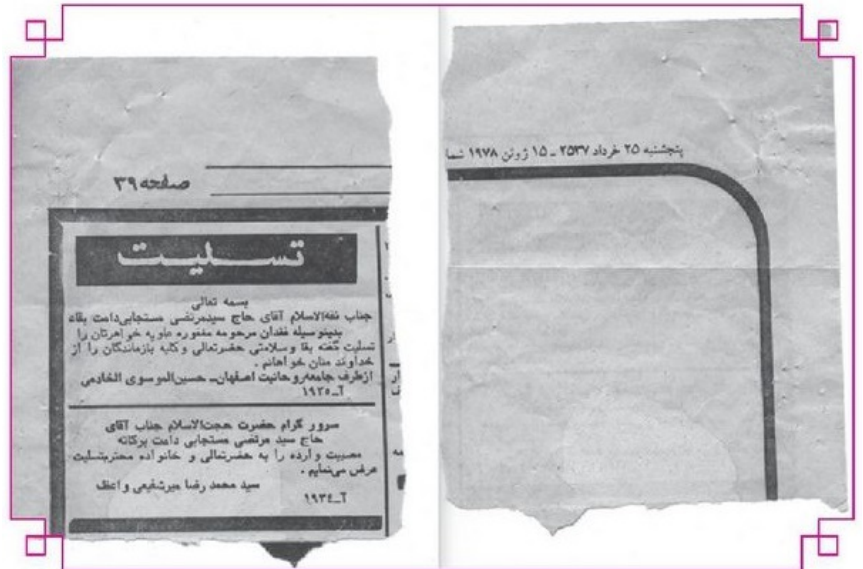 پنجشنبه ۲۵ خرداد ۲۵۳۷ ــ ۱۵ ژوئن ۱۹۷۸ شما
صفحه ۳۹
تسلیت
بسمه تعالی
جناب ثقةالاسلام آقای حاج سیدمرتضی مستجابی‌دامت بقاء
بدینوسیله فقدان مرحومه مغفوره علویه خواهرتان را
تسلیت گفته بقا وسلامتی حضرتعالی وکلیه بازماندگان را از
خداوند منان خواهانم .
ازطرف جامعه‌روحانیت اصفهان‌ــ حسین‌الموسوی الخادمی
آــ۱۹۳۵
سرور گرام حضرت حجت‌الاسلام جناب آقای
حاج سید مرتضی مستجابی دامت برکاته
مصیبت وارده را به حضرتعالی و خانواده محترم‌تسلیت
عرض می‌نمایم .
سید محمد رضا میرشفیعی واعظ
آــ۱۹۳٤